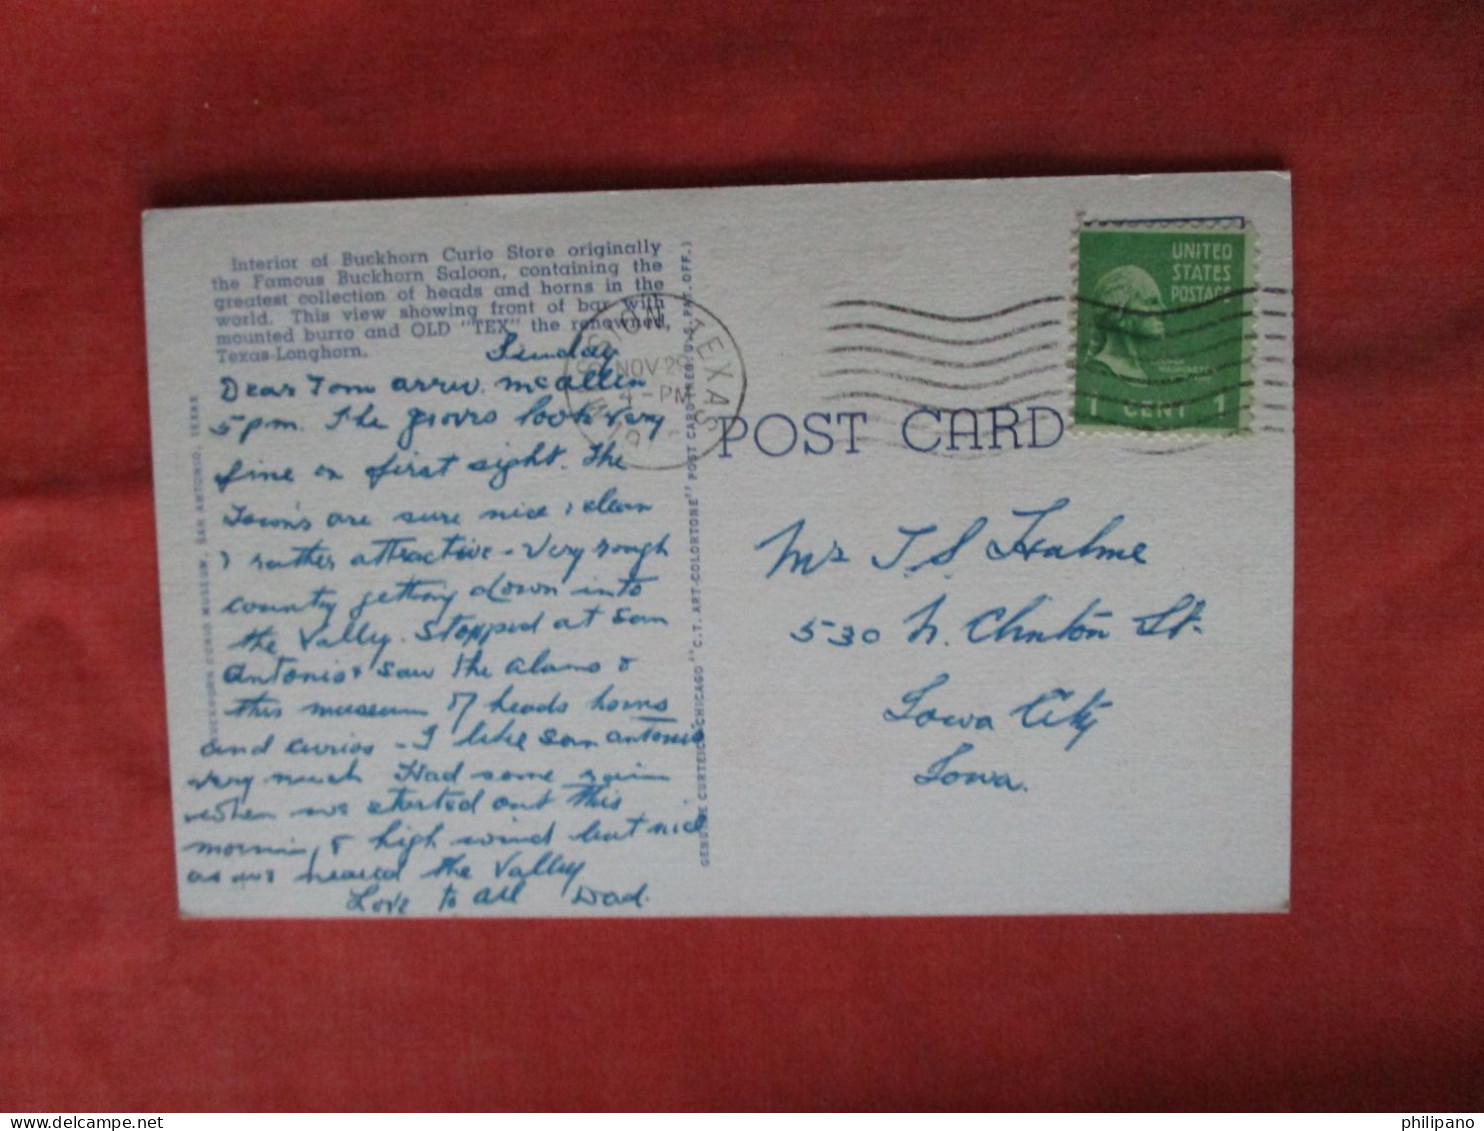 Interior of Buckhorn Curio Store originally
the Famous Buckhorn Saloon, containing the
greatest collection of heads and horns in the
world. This view showing front of bar with
mounted burro and OLD "TEX" the renowned,
Texas-Longhorn.
Sunday
Dear Tom arriv. McAllen
5 pm. The groves look very
fine on first sight. The
Towns are sure nice & clean
& rather attractive - Very rough
country getting down into
the Vally. Stopped at San
Antonio & saw the Alamo &
this museum of heads horns
and curios - I like San Antonio
very much Had some rain
when we started out this
mornin, & high wind but nice
as we neared the Valley
Love to all Dad.
BUCKHORN CURIO MUSEUM, SAN ANTONIO, TEXAS
GENUINE CURTEICH-CHICAGO "C.T. ART-COLORTONE" POST CARD (REG. U.S. PAT. OFF.)
MISSION, TEXAS
NOV 29
PM
UNITED
STATES
POSTAGE
1 CENT 1
POST CARD
Mr T. S. Halme
530 N. Clinton St.
Iowa City
Iowa.
philipano
delcampe.net